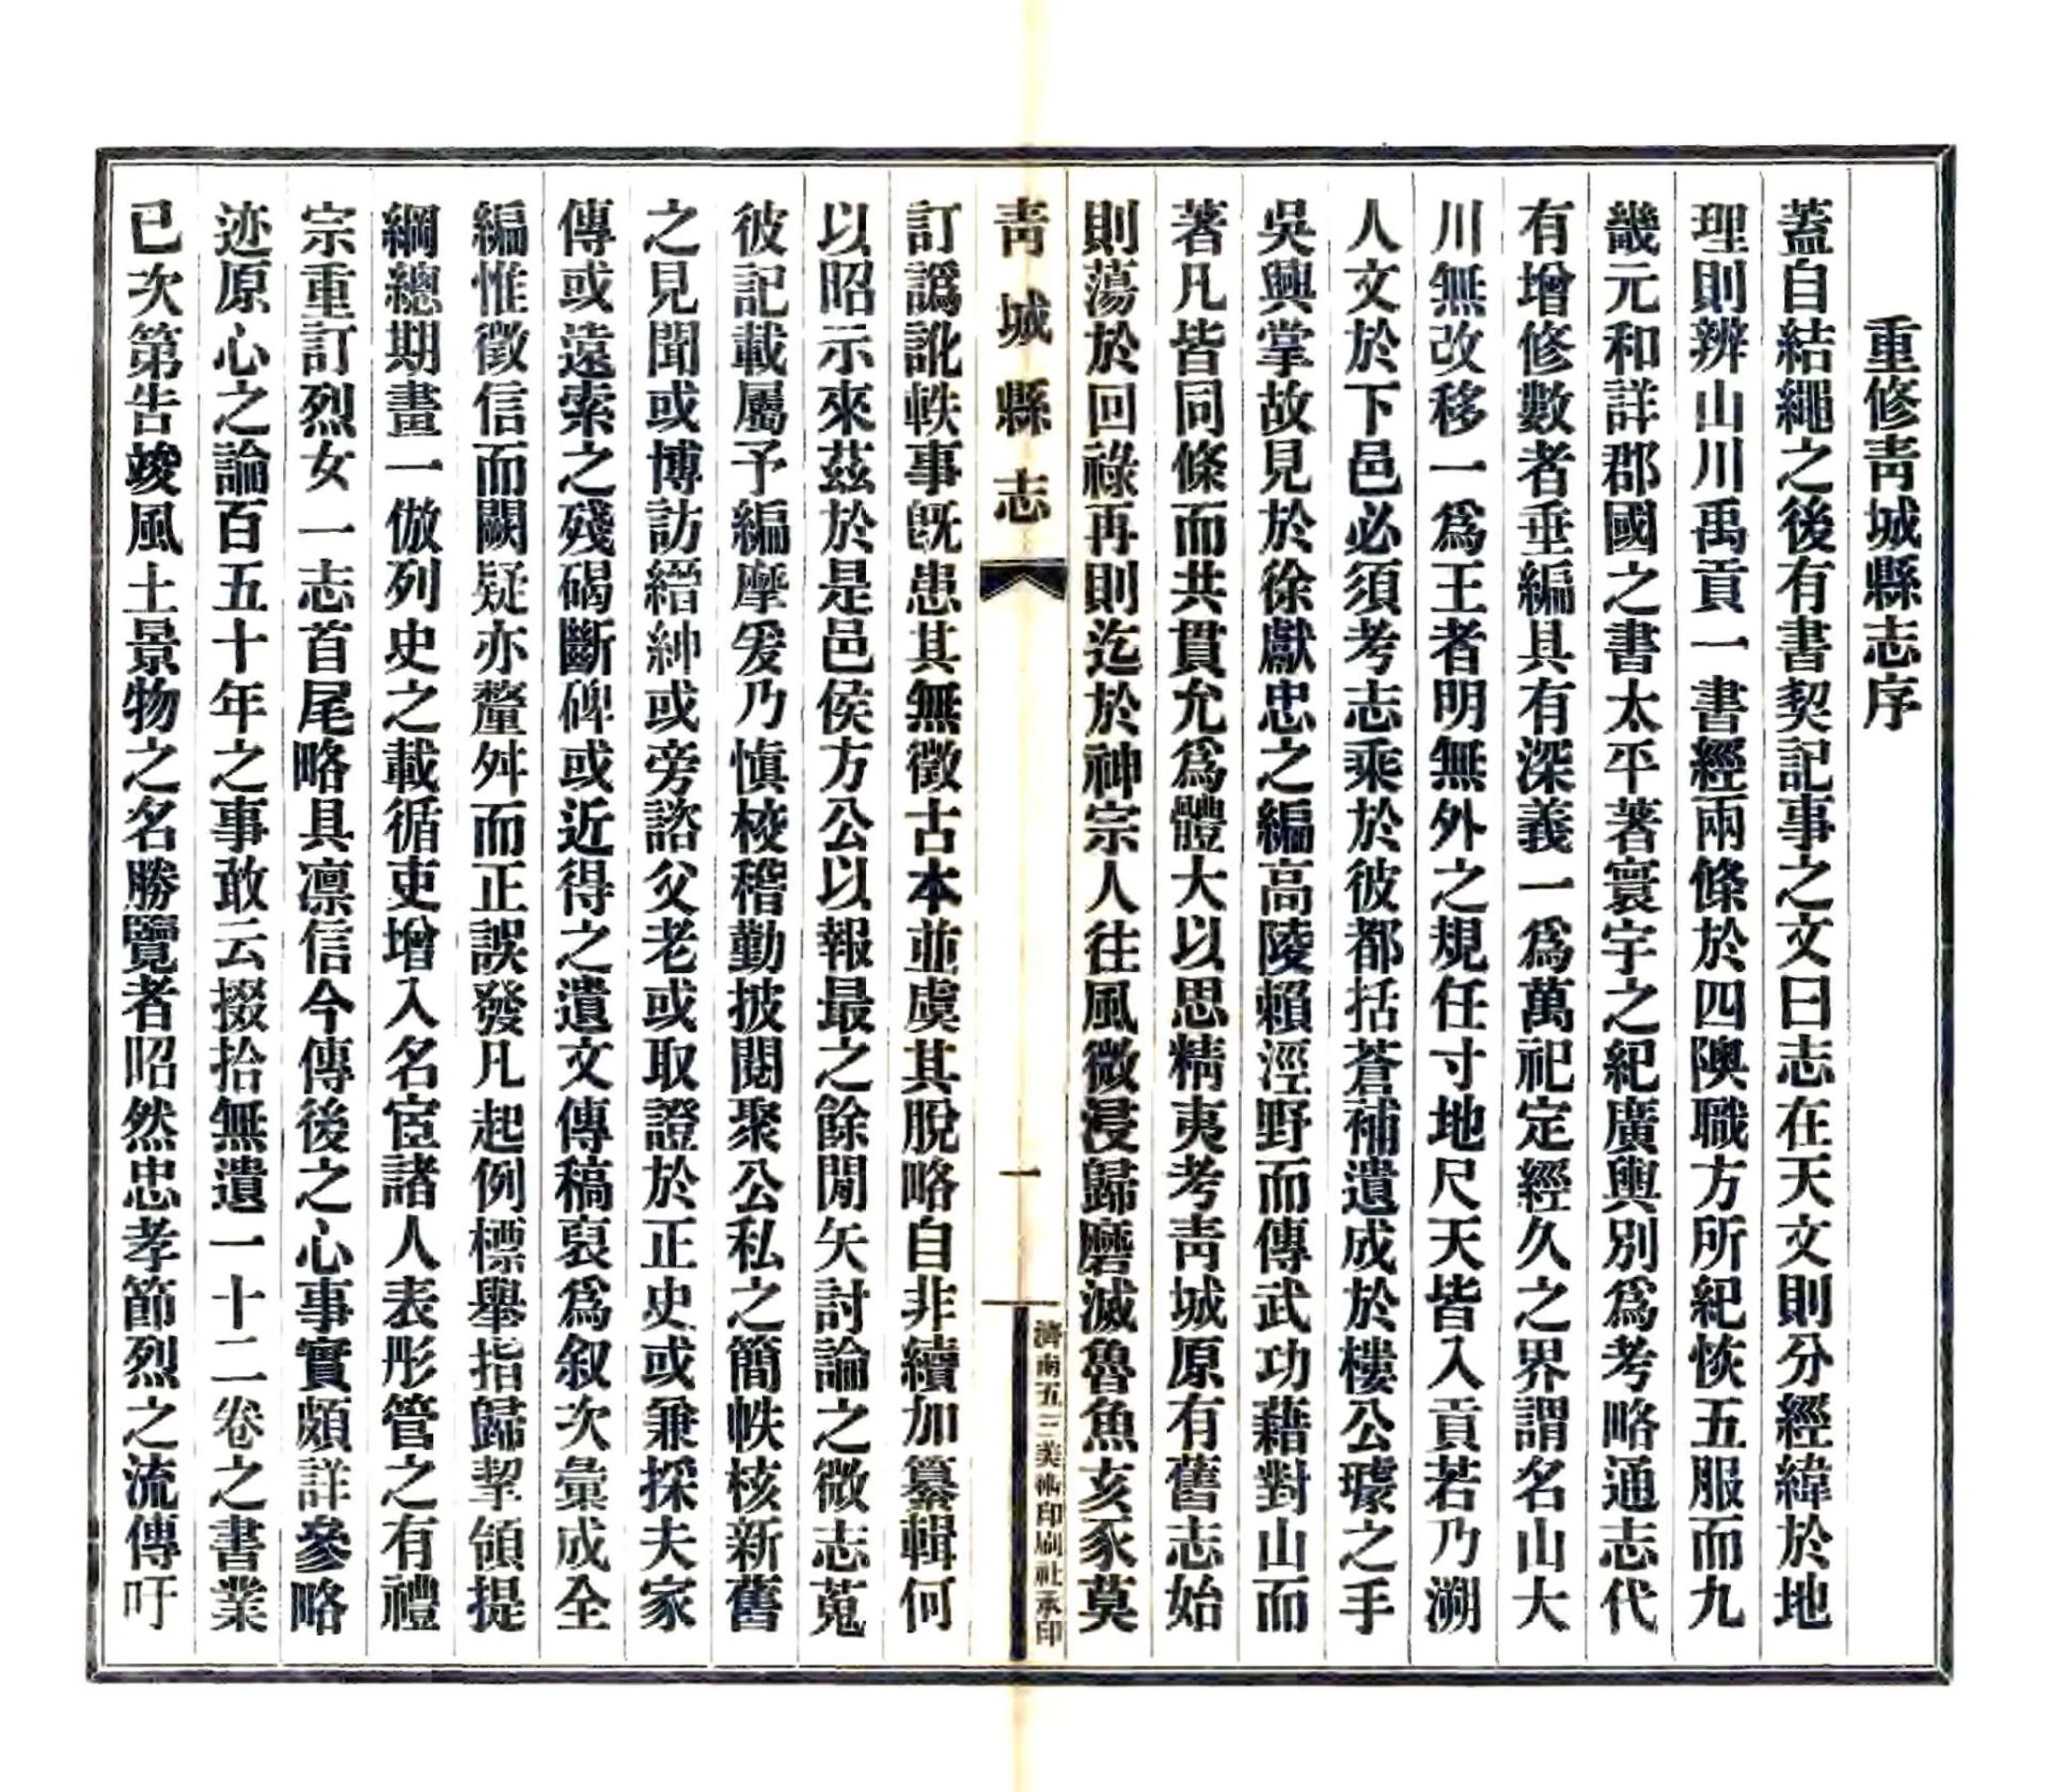 重修靑城縣志序
蓋自結繩之後有書契記事之文曰志在天文則分經緯於地
理則辨山川禹貢一書經兩條於四隩職方所紀恢五服而九
畿元和詳郡國之書太平著寰宇之紀廣輿別爲考略通志代
有增修數者垂編具有深義一爲萬祀定經久之界謂名山大
川無改移一爲王者明無外之規任寸地尺天皆入貢若乃溯
人文於下邑必須考志乘於彼都括蒼補遺成於樓公璩之手
吳興掌故見於徐獻忠之編高陵賴涇野而傳武功藉對山而
著凡皆同條而共貫允爲體大以思精夷考靑城原有舊志始
則蕩於回祿再則迄於神宗人往風微浸歸磨滅魯魚亥豕莫
靑城縣志
一
濟南五三美術印刷社承印
訂譌訛軼事旣患其無徵古本並虞其脫略自非續加纂輯何
以昭示來茲於是邑侯方公以報最之餘閒矢討論之微志蒐
彼記載屬予編摩爰乃愼校稽勤披閱聚公私之簡帙核新舊
之見聞或博訪縉紳或旁諮父老或取證於正史或兼採夫家
傳或遠索之殘碣斷碑或近得之遺文傳稿裒爲叙次彙成全
編惟徵信而闕疑亦釐舛而正誤發凡起例標舉指歸挈領提
綱總期畫一倣列史之載循吏增入名宦諸人表彤管之有禮
宗重訂烈女一志首尾略具凛信今傳後之心事實頗詳參略
迹原心之論百五十年之事敢云掇拾無遺一十二卷之書業
已次第告竣風土景物之名勝覽者昭然忠孝節烈之流傳吁